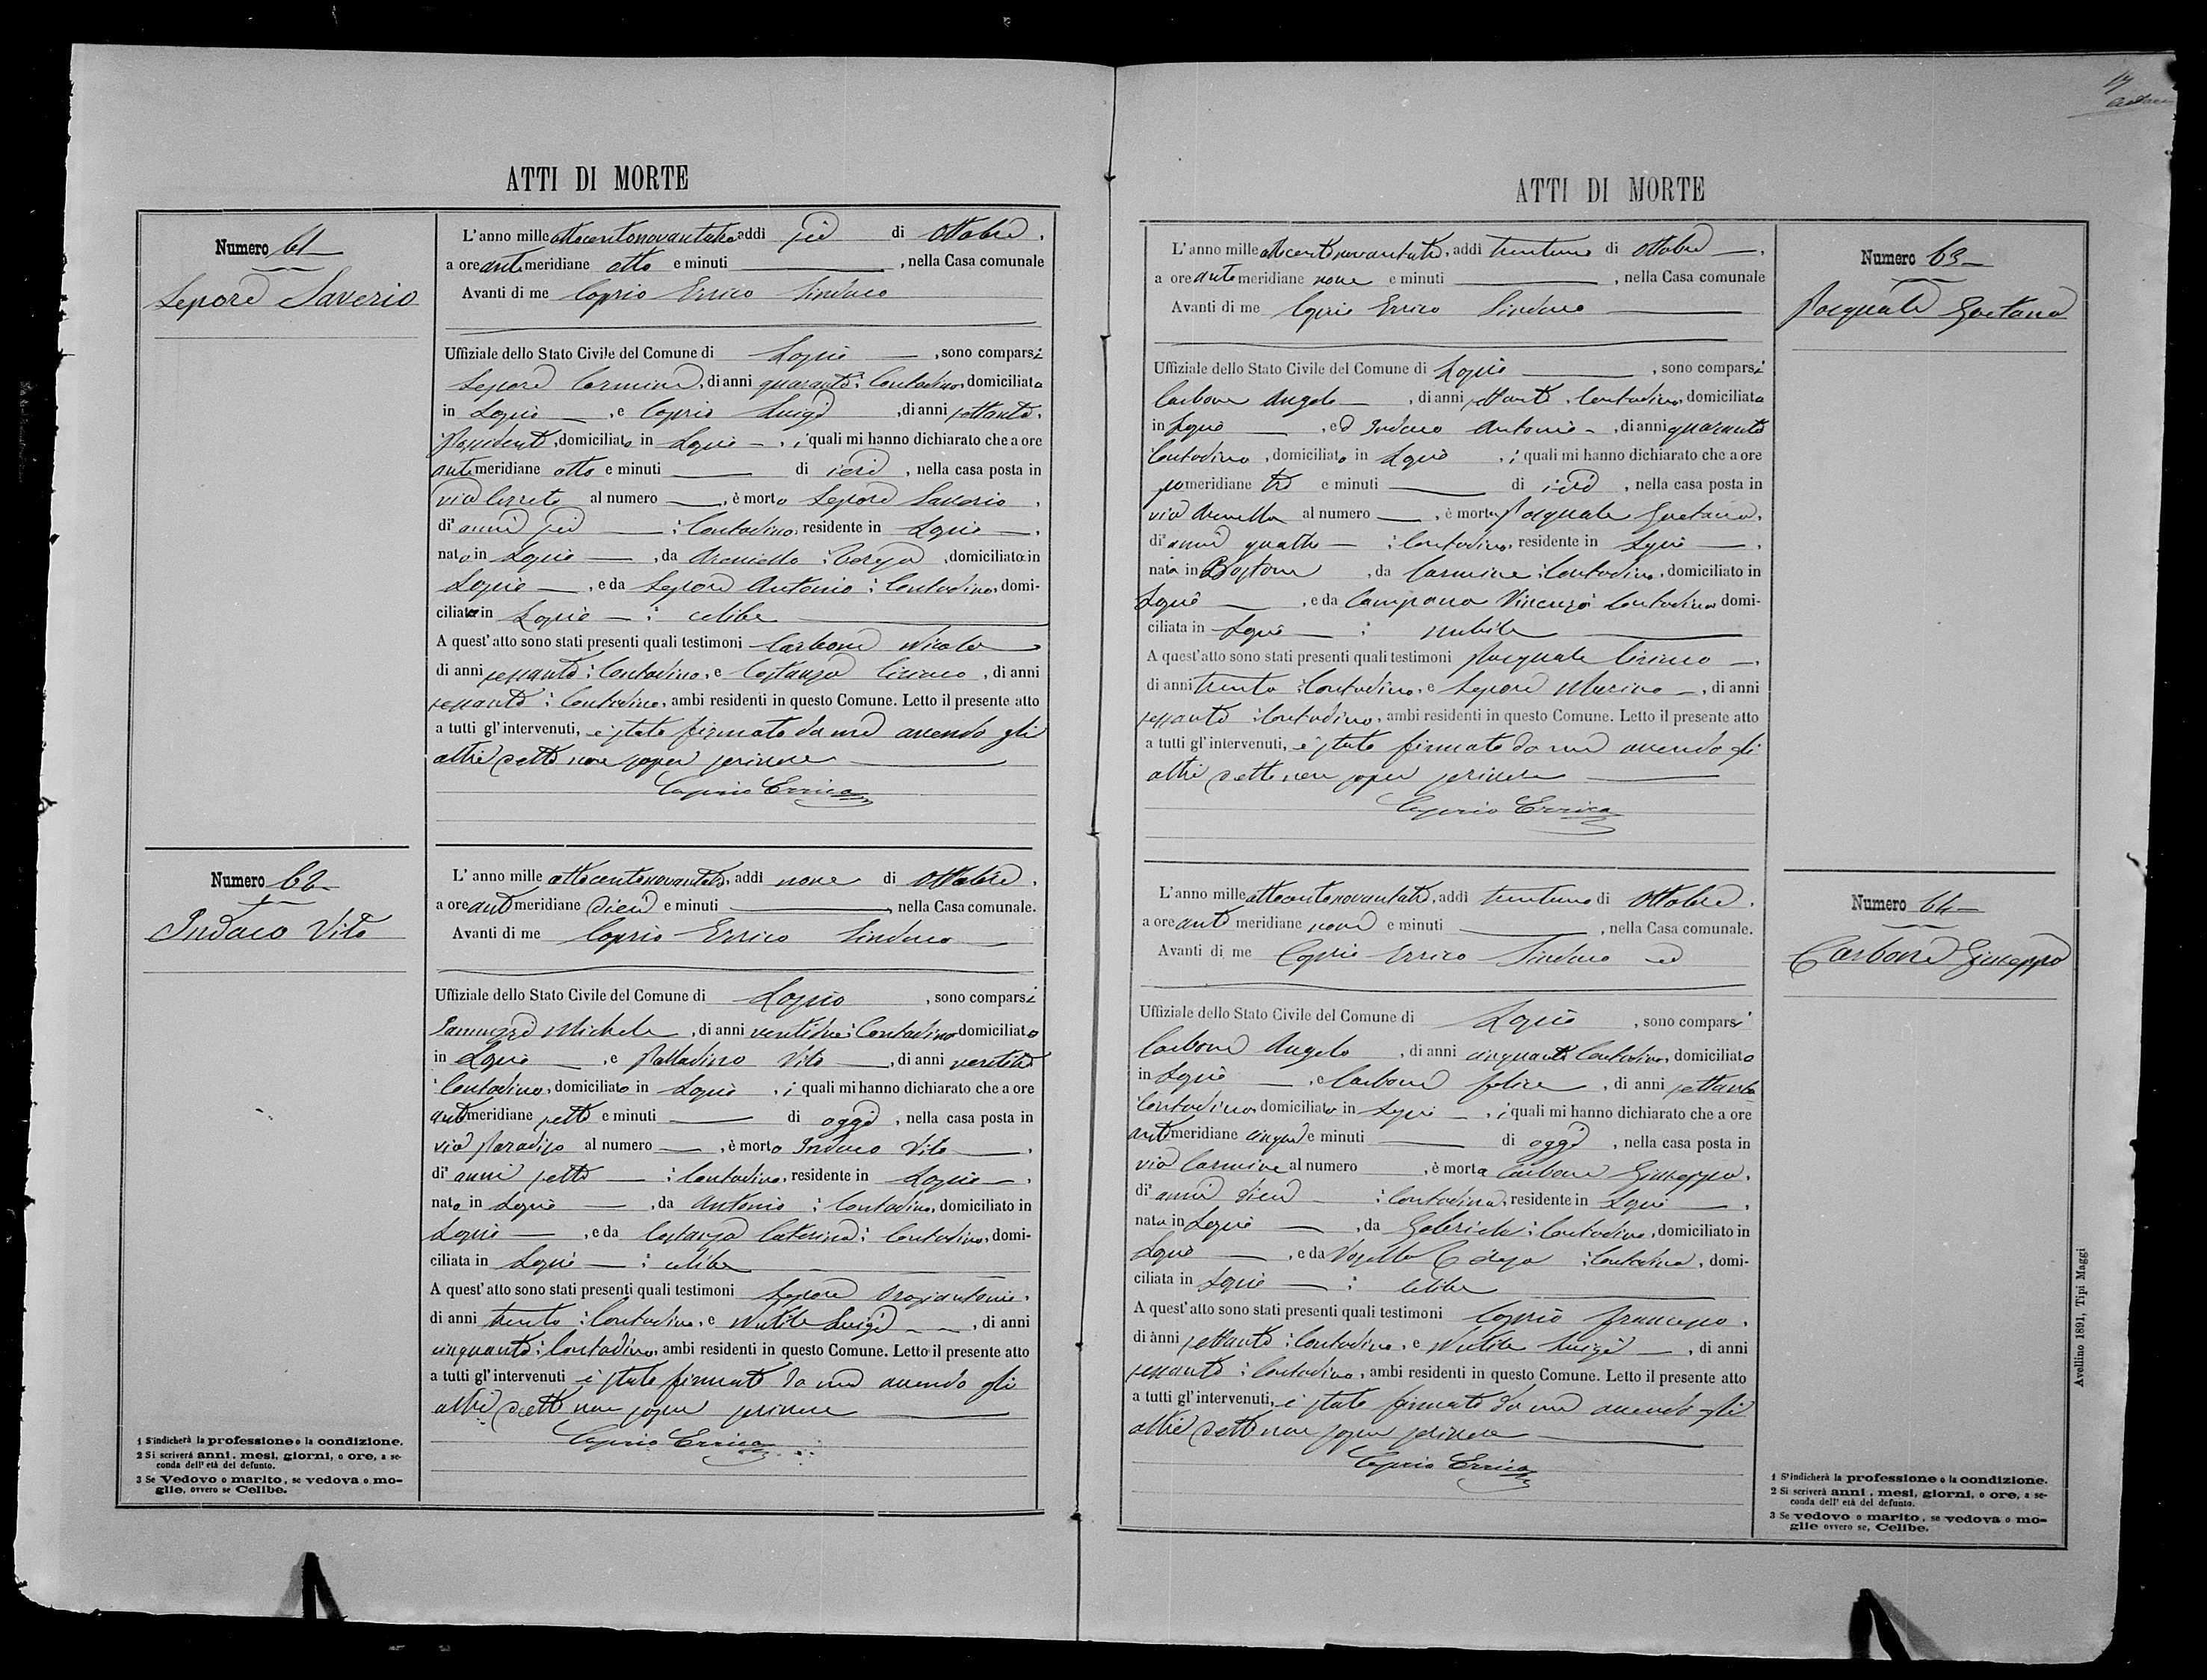 ATTI DI MORTE
Numero 61
Lepore Saverio
L'anno mille ottocentonovantatre, addì sei di Ottobre,
a ore antimeridiane otto e minuti , nella Casa comunale
Avanti di me Caprio Errico Sindaco
Uffiziale dello Stato Civile del Comune di Lapio , sono comparsi
Lepore Carmine, di anni quaranta, Contadino, domiciliato
in Lapio , e Caprio Luigi , di anni settanta,
Possidente, domiciliato in Lapio , i quali mi hanno dichiarato che a ore
antimeridiane otto e minuti di ieri , nella casa posta in
via Cerreto al numero , è morto Lepore Saverio ,
di anni sei , Contadino, residente in Lapio ,
nato in Lapio , da , domiciliata in
Lapio , e da Lepore Antonio , Contadino, domi-
ciliato in Lapio : celibe
A quest'atto sono stati presenti quali testimoni Carbone Nicola
di anni sessanta, Contadino, e Costanza Ciriaco , di anni
sessanta , Contadino, ambi residenti in questo Comune. Letto il presente atto
a tutti gl'intervenuti, è stato firmato da me avendo gli
altri detto non saper scrivere
Caprio Errico
Numero 62
Indaco Vito
L'anno mille ottocentonovantatre, addì nove di Ottobre,
a ore antimeridiane dieci e minuti , nella Casa comunale.
Avanti di me Caprio Errico Sindaco
Uffiziale dello Stato Civile del Comune di Lapio , sono comparsi
Michele , di anni , Contadino domiciliato
in Lapio , e Palladino Vito , di anni ventitre
Contadino, domiciliato in Lapio , i quali mi hanno dichiarato che a ore
antimeridiane sette e minuti di oggi , nella casa posta in
via Paradiso al numero , è morto Indaco Vito ,
di anni sette , Contadino, residente in Lapio ,
nato in Lapio , da Antonio , Contadino, domiciliato in
Lapio , e da Costanza Caterina , Contadina, domi-
ciliata in Lapio : celibe
A quest'atto sono stati presenti quali testimoni Lepore Oraziantonio,
di anni trenta , Contadino, e Nutile Luigi , di anni
cinquanta, Contadino, ambi residenti in questo Comune. Letto il presente atto
a tutti gl'intervenuti è stato firmato da me avendo gli
altri detto non saper scrivere
Caprio Errico
1 S'indicherà la professione o la condizione.
2 Si scriverà anni, mesi, giorni, o ore, a se-
conda dell'età del defunto.
3 Se Vedovo o marito, se vedova o mo-
glie, ovvero se Celibe.
17
ATTI DI MORTE
Numero 63
Pasquale Gaetana
L'anno mille ottocentonovantatre, addì trentuno di Ottobre ,
a ore antimeridiane nove e minuti , nella Casa comunale
Avanti di me Caprio Errico Sindaco
Uffiziale dello Stato Civile del Comune di Lapio , sono comparsi
Carbone Angelo , di anni settanta, Contadino, domiciliato
in Lapio , ed Indaco Antonio , di anni quaranta
Contadino, domiciliato in Lapio , i quali mi hanno dichiarato che a ore
pomeridiane tre e minuti di ieri , nella casa posta in
via Arenella al numero , è morta Pasquale Gaetana,
di anni quattro , Contadina, residente in Lapio ,
nata in Boston , da Carmine, Contadino, domiciliato in
Lapio , e da Campana Vincenza Contadina domi-
ciliata in Lapio : nubile
A quest'atto sono stati presenti quali testimoni Pasquale Ciriaco ,
di anni trenta , Contadino, e Lepore Marino , di anni
sessanta , Contadino, ambi residenti in questo Comune. Letto il presente atto
a tutti gl'intervenuti, è stato firmato da me avendo gli
altri detto non saper scrivere
Caprio Errico
Numero 64
Carbone Giuseppa
L'anno mille ottocentonovantatre, addì trentuno di Ottobre,
a ore antimeridiane nove e minuti , nella Casa comunale.
Avanti di me Caprio Errico Sindaco
Uffiziale dello Stato Civile del Comune di Lapio , sono comparsi
Carbone Angelo , di anni cinquanta Contadino, domiciliato
in Lapio , e Carbone Felice , di anni settanta
Contadino, domiciliato in Lapio , i quali mi hanno dichiarato che a ore
antimeridiane cinque e minuti di oggi , nella casa posta in
via Carmine al numero , è morta Carbone Giuseppa,
di anni dieci , Contadina, residente in Lapio ,
nata in Lapio , da Gabriele , Contadino, domiciliato in
Lapio , e da , Contadina, domi-
ciliata in Lapio : celibe
A quest'atto sono stati presenti quali testimoni Caprio Francesco,
di anni settanta , Contadino, e Nutile Luigi , di anni
sessanta , Contadino, ambi residenti in questo Comune. Letto il presente atto
a tutti gl'intervenuti, è stato firmato da me avendo gli
altri detto non saper scrivere
Caprio Errico
1 S'indicherà la professione o la condizione.
2 Si scriverà anni, mesi, giorni, o ore, a se-
conda dell'età del defunto.
3 Se vedovo o marito, se vedova o mo-
glie ovvero se, Celibe.
Avellino 1891, Tipi Maggi